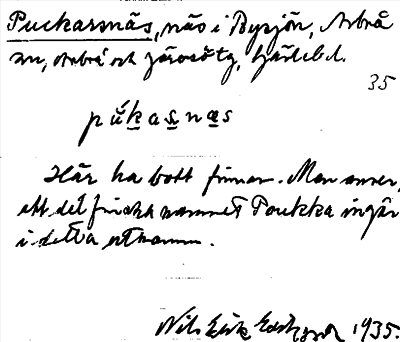 Puckarsnäs, näs i Bysjön, Arbrå
sn, Arbrå och Järvsö tg, Gävlebl.
35
pukasnas
Här ha bott finnar. Man anser,
att det finska namnet Poukka ingår
i detta ortnamn.
Nils Erik 1935.